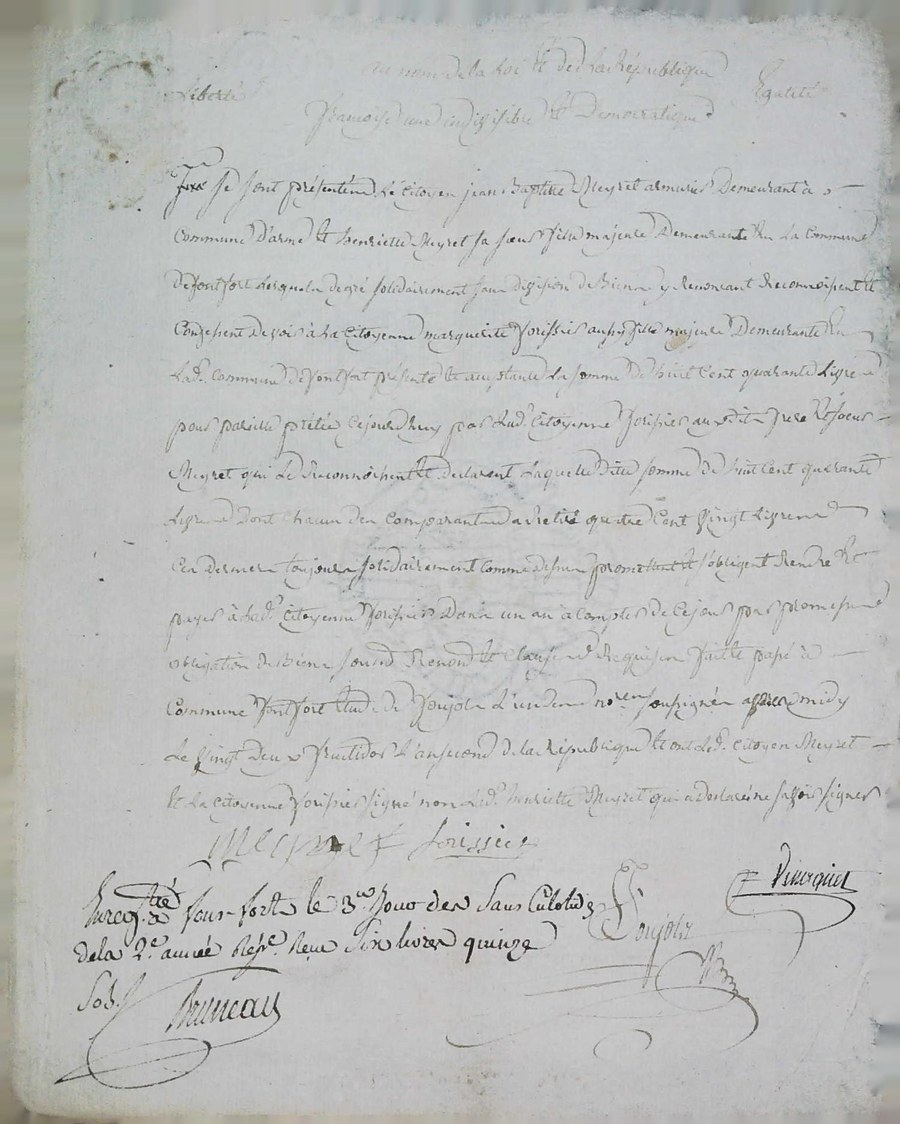 au nom de la Loi et de la République
Liberté Egalité
françoise une indivisible et Democratique
se sont présentés Le Citoyen jean Baptiste Meyret armurier Demeurant à
Commune D'arme et henriette Meyret sa soeur fille majeure Demeurante En La Commune
de fontfort Lesquels de gré solidairement sans division de Biens y Renoncant Reconnoissent et
Confessent Devoir à La Citoyenne marguerite forissier aussy fille majeure Demeurante En
Lad. Commune de fontfort présente et acceptante La somme De huit Cent quarante Livres
pour pareille prêtée Cejourdhuy par Lad. Citoyenne forissier auxdits frere et soeur
Meyret qui Le Reconnoissent et declarent Laquelle dite somme De huit Cent quarante
Livres Dont chacun des Comparants a retiré quatre Cent Vingt Livres
Ces derniers toujours solidairement Comme dessus promettent et s'obligent Rendre et
payer à Lad. Citoyenne forissier Dans un an à Compter de Cejour par promesse
obligation de Biens soumd. Renond. et Clauses Requises fait et passé à
Commune fontfort Etude de foujols L'un des nores soussignés apres midy
Le Vingt Deux fructidor L'an second de la République et ont Led. Citoyen Meyret
et La Citoyenne forissier signé non Lad. henriette Meyret qui a Declaré ne savoir signer
Meyret forissier
Enregtré a fons-forts le 3e Jour des Sans Culotides
de la 2e année Repe. Reçu Six livres quinze
Sols. Bruneau